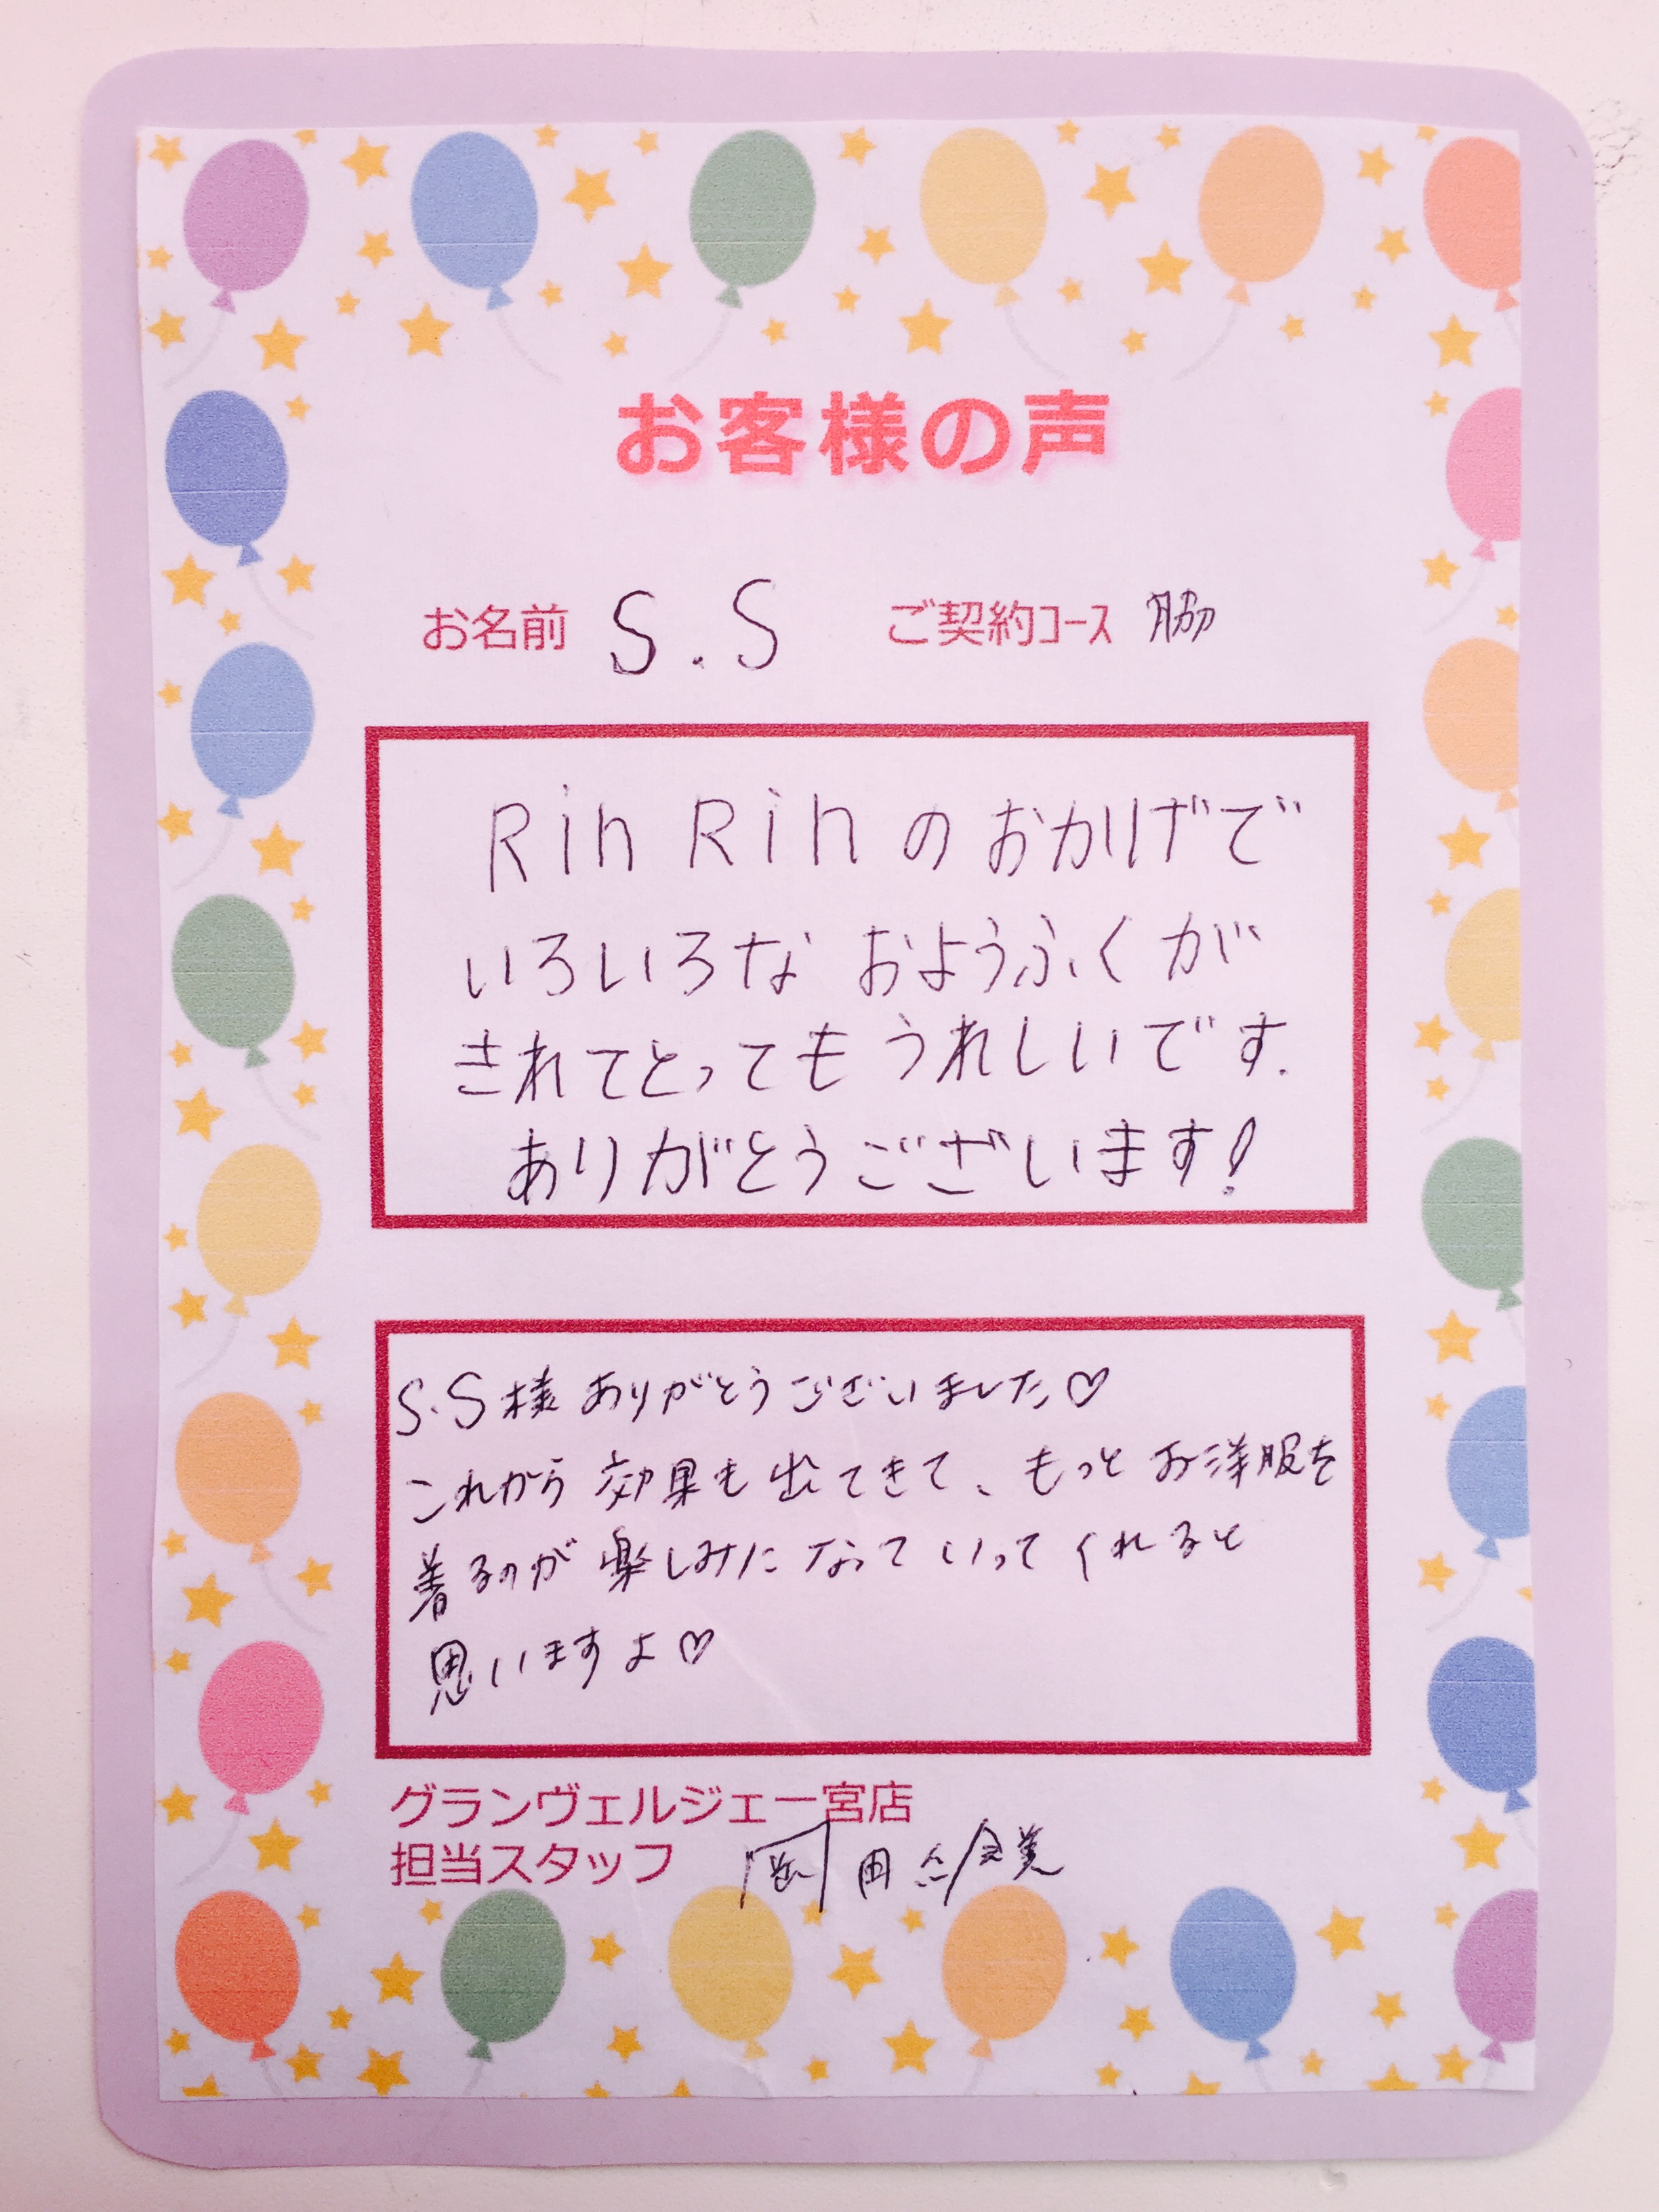 お客様の声
お名前 S.S ご契約コース 脇
RinRinのおかげで
いろいろな おようふくが
きれてとっても うれしいです.
ありがとうございます!
S.S様 ありがとうございました♡
これから 効果も 出てきて、もっと お洋服を
着るのが 楽しみに なって いって くれると
思いますよ♡
グランヴェルジェ一宮店
担当スタッフ 岡田